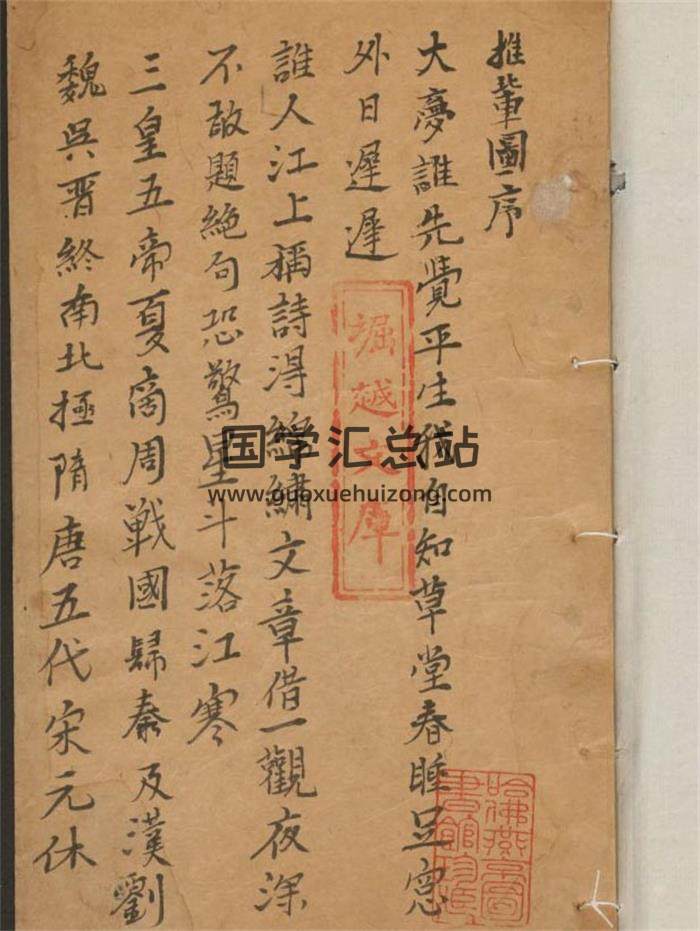 推輩圖序
大夢誰先覺平生我自知草堂春睡足窓
外日遲遲
誰人江上稱詩淂繡文章借一觀夜深
不敢題絶句恐驚星斗落江寒
三皇五帝夏商周戰國歸秦及漢劉
魏吳晋終南北極隋唐五代宋元休
堀越文庫
哈佛燕京圖書館珍藏
国学汇总站
www.guoxuehuizong.com